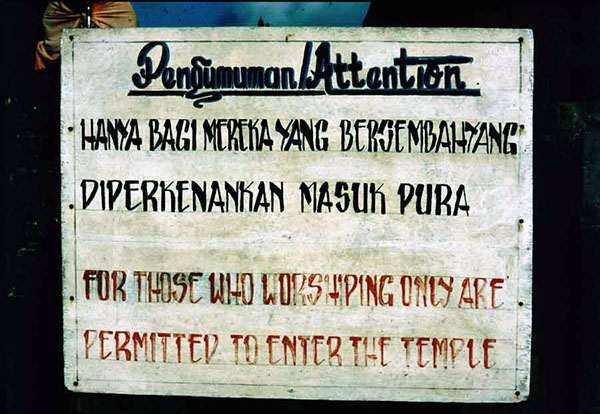 Pengumuman/Attention
HANYA BAGI MEREKA YANG BERSEMBAHYANG
DIPERKENANKAN MASUK PURA
FOR THOSE WHO WORSHIPING ONLY ARE
PERMITTED TO ENTER THE TEMPLE